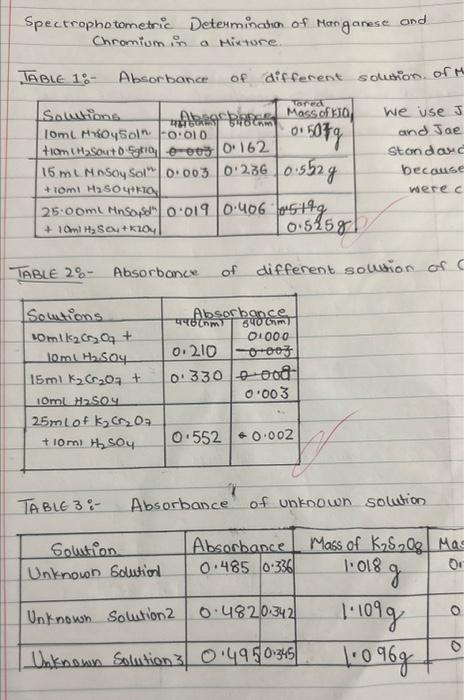 Spectrophotometric Determination of Manganese and
Chromium in a Mixture.
TABLE 1:- Absorbance of different solution. of M
Solutions Absorbance Tared Mass of KIO4
440(nm) 540(nm)
10ml MnSO4 Soln -0.010 0.507g
+10ml H2SO4+0.5g KIO4 0.003 0.162
15ml MnSO4 Soln 0.003 0.236 0.552g
+10ml H2SO4+KIO4
25.00ml MnSO4 Soln 0.019 0.406 0.519g
+ 10ml H2SO4+KIO4 0.525g
We use J
and Jae
standard
because
were c
TABLE 2:- Absorbance of different solution of C
Solutions Absorbance
440(nm) 540(nm)
10ml K2Cr2O7 + 0.000
10ml H2SO4 0.210 -0.003
15ml K2Cr2O7 + 0.330 0.008
10ml H2SO4 0.003
25ml of K2Cr2O7
+10ml H2SO4 0.552 0.002
TABLE 3:- Absorbance of unknown solution
Solution Absorbance Mass of K2S2O8 Mas
Unknown Solution1 0.485 0.336 1.018 g 0.
Unknown Solution2 0.482 0.342 1.109g 0
Unknown Solution3 0.495 0.345 1.096g 0